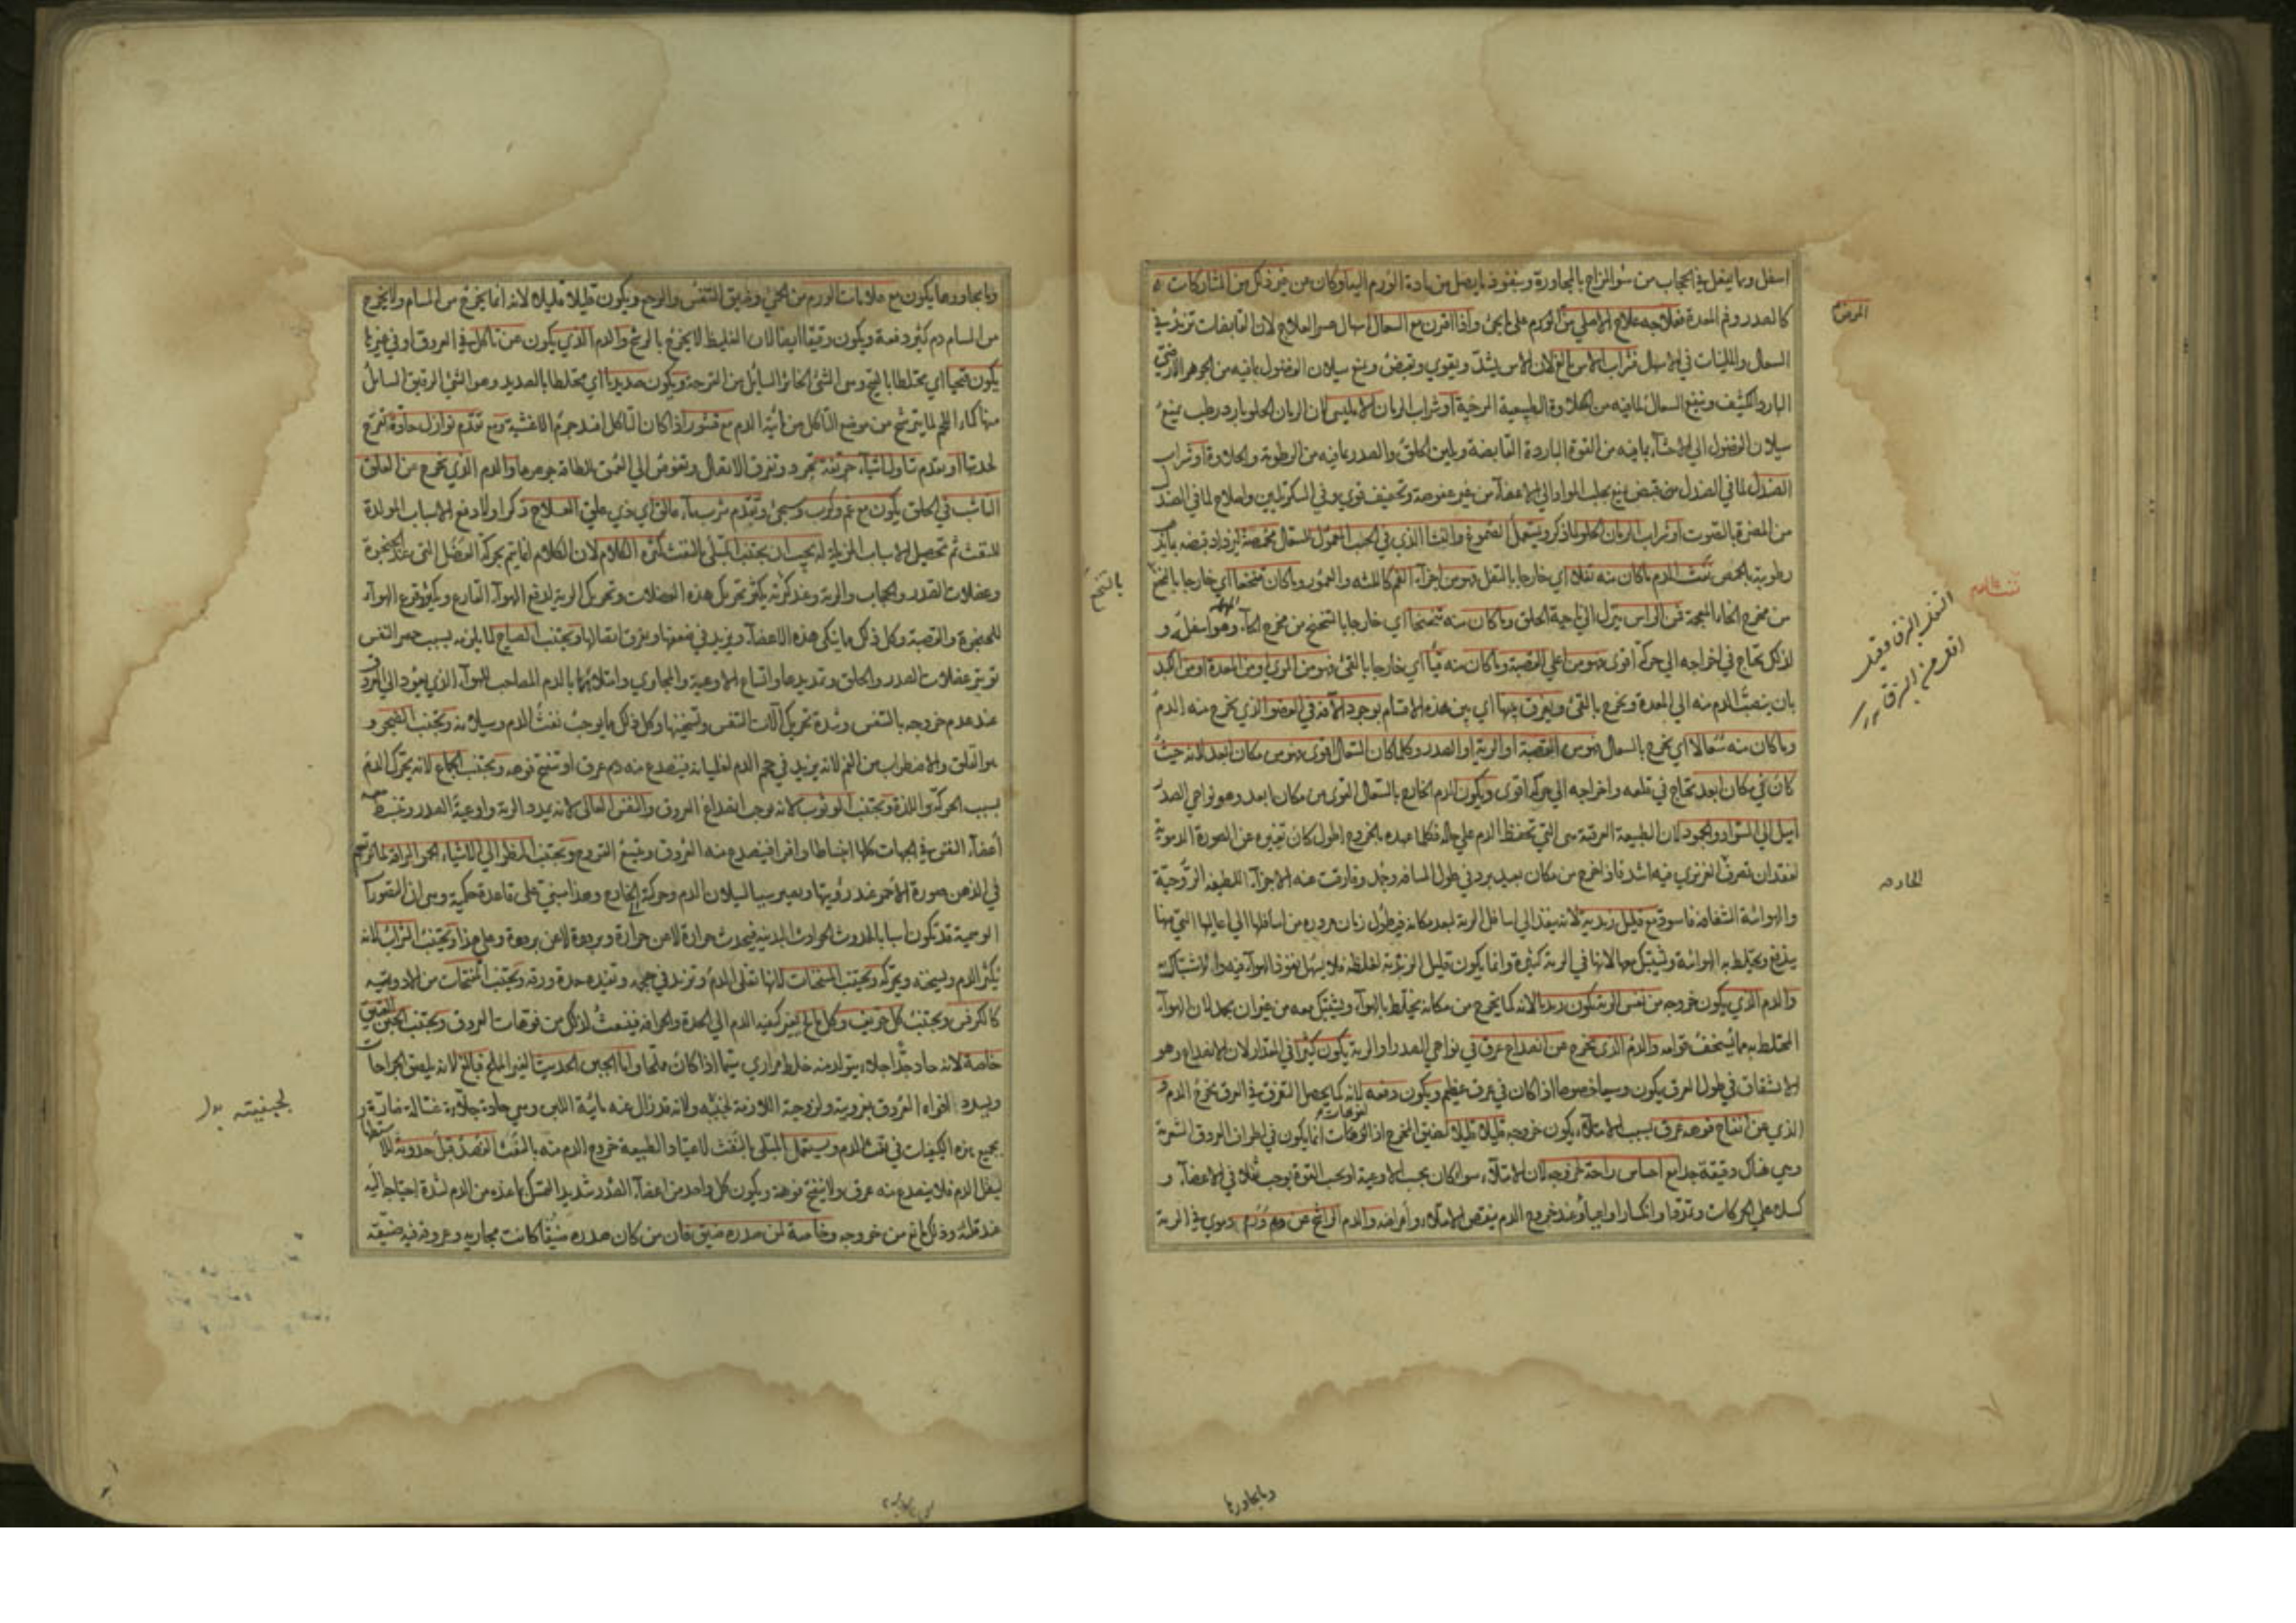 اسفل وما يفعل في الحجاب من سوء المزاج بالمجاورة وبنفوذ ما يصل من مادة الورم اليه او كان من غير ذلك من المشاركات
كالصدر وفم المعدة فعلاجه علاج الاصلي من الورم على ما يجئ واذا اقترن مع السعال اسهال عسر العلاج لان القابضات تزيد في
السعال والملينات في الاسهال فشراب الآس نافع لان الآس يشد ويقوي ويقبض ويمنع سيلان الفضول بما فيه من الجوهر الارضي
البارد الكثيف وينفع السعال لما فيه من الحلاوة الطبيعية المرخية او شراب الرمان الامليسي لان الرمان الحلو بارد رطب يمنع
سيلان الفضول الى الاحشاء بما فيه من القوة الباردة القابضة ويلين الحلق والصدر بما فيه من الرطوبة والحلاوة او شراب
الصندل لما في الصندل من قبض يمنع تجلب المواد الى الاعضاء من غير عفوصة وتجفيف قوي وفي السكر تليين واصلاح لما في الصندل
من المضرة بالصوت او شراب الرمان الحلو لما ذكر ويستعمل الصموغ والنشا الذي في الحب المعمول للسعال محمصة ليزداد قبضه
رطوبته بالحمص نفث الدم ما كان منه تفلا اي خارجا بالتفل فهو من اجزاء الفم كاللثة والعمور وما كان تنخما اي خارجا بالتنخم
من مخرج الخاء المعجمة فمن الراس ينزل الى ناحية الحلق وما كان منه تنحنحا اي خارجا بالتنحنح من مخرج الحاء وهو اسفله و
لذلك يحتاج في اخراجه الى حركة اقوى فهو من اعلى القصبة وما كان منه قيأ اي خارجا بالقئ فهو من المرئ او من المعدة او من الكبد
بان ينصب الدم منه الى المعدة ويخرج بالقئ ويفرق بينها اي بين هذه الاقسام بوجود الآفة في العضو الذي يخرج منه الدم
وما كان منه سعالا اي يخرج بالسعال فهو من القصبة او الرية او الصدر وكلما كان السعال اقوى فهو من مكان ابعد لانه حيث
كان في مكان ابعد يحتاج في قلعه واخراجه الى حركة اقوى ويكون الدم الخارج بالسعال القوي من مكان ابعد وهو نواحي الصدر
اميل الى السواد والجمود لان الطبيعة العرقية هي التي تحفظ الدم على حاله فكلما عهده بالخروج اطول كان تغيره عن الصورة الدموية
لفقدان تصرف الغريزي فيه اشد فاذا خرج من مكان بعيد برد في طول المسافة وجمد وفارقت عنه الاجزاء اللطيفة الروحية
والهوائية الشفافة فاسود مع قليل زبدية لانه ينفذ الى اسافل الرية لبعد مكانه في طول زمان مروره من اسافلها الى اعاليها التي منها
يندفع ويختلط به الهوائية وتشتبك معها لانها في الرية كثيرة وانما يكون قليل الزبدية لغلظه فلا يسهل نفوذ الهواء فيه والاشتباك به
والدم الذي يكون خروجه من نفس الرية يكون زبديا لانه كما يخرج من مكانه يختلط بالهواء ويشتبك معه من غير ان يجد لان الهواء
المختلط به مما يسخف قوامه والدم الذي يخرج من انصداع عرق في نواحي الصدر او الرية يكون كثيرا في المقدار لان الانصداع وهو
الانشقاق في طول العرق يكون وسيعا خصوصا اذا كان في عرق عظيم ويكون دفعة لانه كما يحصل التفرق في العرق يخرج الدم و
الذي عن انفتاح فوهة عرق بسبب الامتلاء يكون خروجه قليلا قليلا لضيق المخرج اذ الفوهات انما يكون في اطراف العروق الشعرية
وهي هناك دقيقة جدا مع احساس راحة لخروجه لان الامتلاء سواء كان بحسب الاوعية او بحسب القوة يوجب ثقلا في الاعضاء و
كسلا على الحركات وتمددا وانكسارا واعياء وعند خروج الدم ينقص الامتلاء واعراضه والدم الراشح عن ورم دموي في الرية
المرضة
نفث الدم
بالتنخم
الحادة
وما يجاورها
وما يجاورها يكون مع علامات الورم من الحمى وضيق النفس والوجع ويكون قليلا قليلا لانه انما يخرج من المسام ولا يخرج
من المسام دم كثير دفعة ويكون رقيقا ايضا لان الغليظ لا يخرج بالرشح والدم الذي يكون عن تاكل في العروق او في غيرها
يكون قيحيا اي مختلطا بالقيح وهي الشئ الخاثر السائل من القرحة ويكون صديديا اي مختلطا بالصديد وهو الشئ الرقيق السائل
منها كماء اللحم لما يترشح من موضع التاكل من مائية الدم مع قشور اذا كان التاكل افسد جرم الاغشية ومع تقدم نوازل حادة تقرح
لحدتها او تقدم تناول اشياء حريفة تجرد وتفرق الاتصال وتغوص الى العمق بلطافة جوهرها والدم الذي يخرج من العلق
الناشب في الحلق يكون مع غم وكرب وسحج وتقدم شرب ماء مالق اي ذي علق العلاج ذكر اولا دفع الاسباب المولدة
للنفث ثم تحصيل الاسباب المزيلة له يجب ان يجتنب المبتلى بالنفث كثرة الكلام لان الكلام انما يتم بحركة العضل التي عند الحنجرة
وعضلات الصدر والحجاب والرية وعند كثرته يكثر تحريك هذه العضلات وتحريك الرية لدفع الهواء القارع ويكثر قرع الهواء
للحنجرة والقصبة وكل ذلك مما ينكي هذه الاعضاء ويزيد في ضعفها وتفرق اتصالها ويجتنب الصياح لما يلزمه بسبب حصر النفس
توتر عضلات الصدر والحلق وتمديدها واتساع الاوعية والمجاري وامتلائها بالدم المصاحب للهواء الذي يعود الى العروق
عند عدم خروجه بالتنفس وشدة تحريك آلات التنفس وتسخينها وكل ذلك مما يوجب نفث الدم وسيلانه ويجتنب الضجر و
هو القلق والاضطراب من الغم لانه يزيد في حجم الدم لغليانه فينصدع منه فم عرق او تنفتح فوهة ويجتنب الجماع لانه يحرك الدم
بسبب الحركة واللذة ويجتنب الوثوب لانه يوجب انصداع العروق والنفس العالي لانه يمدد الرية واوعية الصدر وتنبسط
اعضاء النفس في الجهات كلها انبساطا وافرا فينصدع منه العروق ويمنع القروح ويجتنب النظر الى الاشياء الحمر البراقة لما ترتسم
في الذهن صورة الاحمر عند رؤيتها ويصير سببا لسيلان الدم وحركة الى الخارج وهذا مبني على قاعدة حكمية وهي ان التصورات
الوهمية قد تكون اسبابا لحدوث الحوادث البدنية فيحدث حرارة لا عن حرارة وبرودة لا عن برودة وعلى هذا ويجتنب الشراب لانه
يكثر الدم ويسخنه ويحركه ويجتنب المسخنات لانها تغلي الدم وتزيد في حجمه وتفيده حدة ورقة ويجتنب المفتحات من الادوية
كالكرفس ويجتنب كل حريف وكل مالح يغير كيفية الدم الى الحدة والحرافة فينبعث لذلك من فوهات العروق ويجتنب الجبن العتيق
خاصة لانه حاد جدا جلاء يتولد منه خلط مراري سيما اذا كان مملحا واما الجبن الحديث الغير المملح فنافع لانه يلصق الجراحات
ويسدد افواه العروق بغرويته ولزوجته اللازمة لجبنيته ولانه قد زال عنه مائية اللبن وهي حادة جلاءة غسالة ضارة
بجميع هذه الكيفيات في نفث الدم ويستعمل المبتلى بالنفث لاعتياد الطبيعة خروج الدم منه بالنفث الفصد قبل حدوثه
ليقل الدم فلا ينصدع منه عرق ولا ينفتح فوهة ويكون كل واحد من اعضاء الصدر شديد التمسك بما عنده من الدم لشدة احتياجه اليه
عند قلته وذلك مانع من خروجه وخاصة لمن صدره ضيق فان من كان صدره ضيقا كانت مجاريه وعروقه فيه ضيقة
لجبنيته